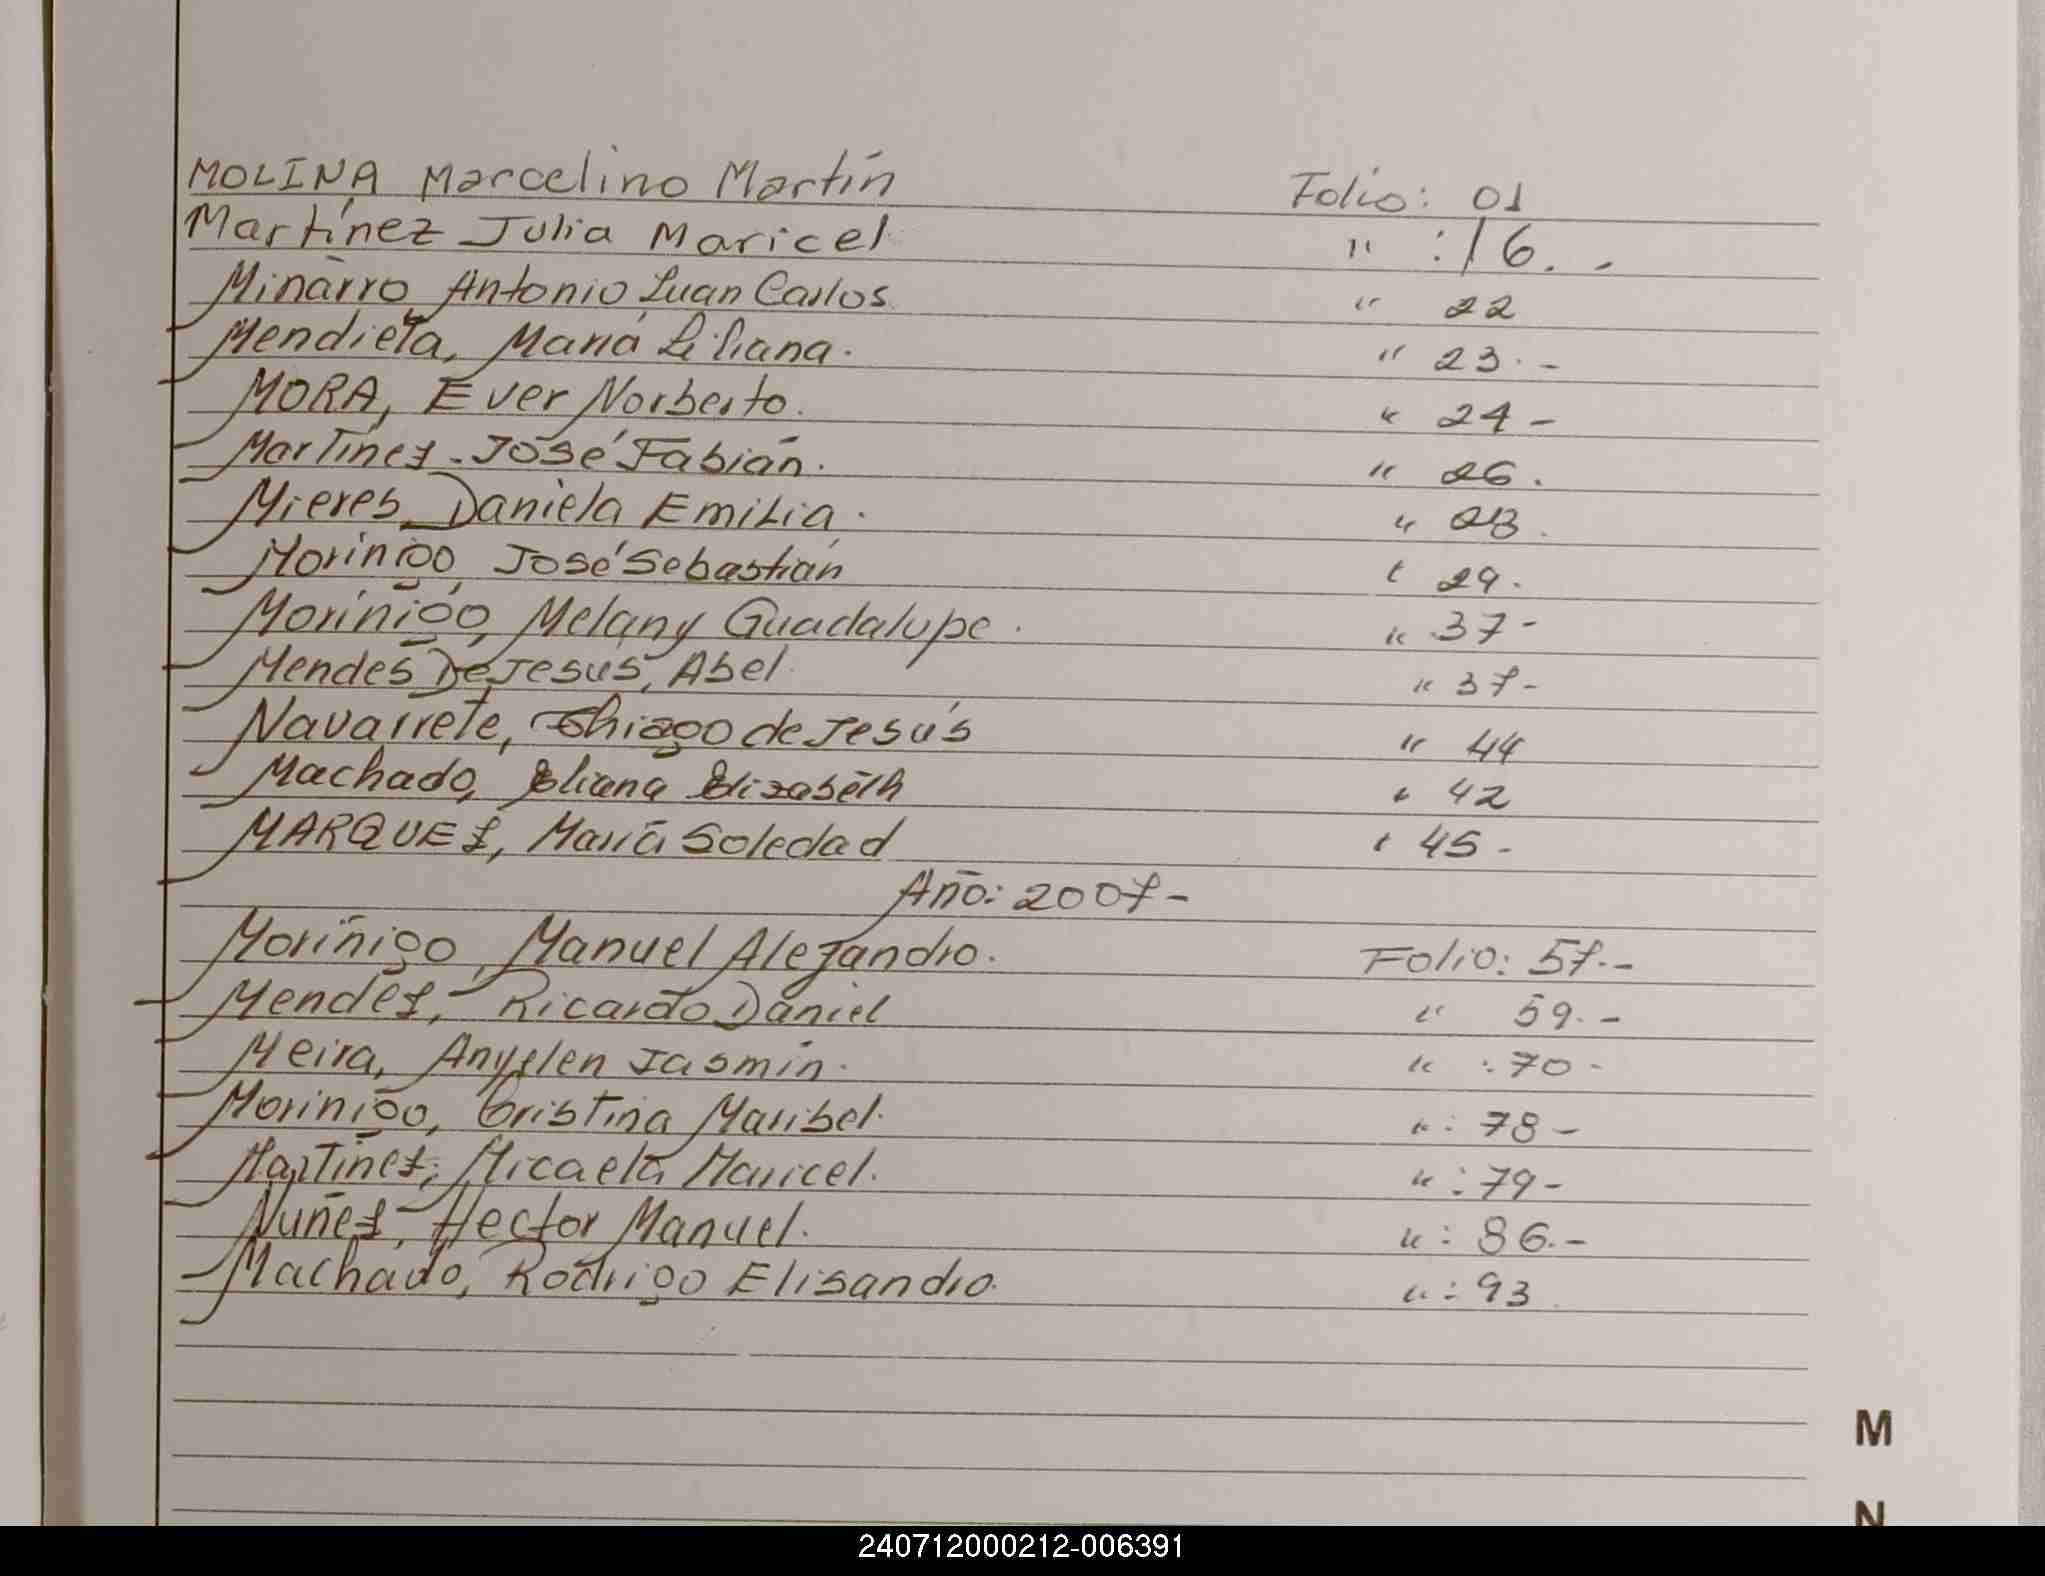 MOLINA Marcelino Martín Folio: 01
Martínez Julia Maricel " :16. -
Minarro, Antonio Juan Carlos. " 22
Mendieta, María Liliana. " 23. -
MORA, Ever Norberto. " 24 -
Martínez. José Fabián. " 26.
Mieres, Daniela Emilia. " 28.
Morínigo, José Sebastián " 29.
Morínigo, Melany Guadalupe. " 37 -
Mendes De Jesus, Abel. " 37 -
Navarrete, Thiago de Jesús " 44
Machado, Eliana Elizabeth " 42
MARQUEZ, María Soledad " 45 -
Año: 2007 -
Moriñigo, Manuel Alejandro. Folio: 57. -
Mendez, Ricardo Daniel " 59. -
Meira, Anyelen Jasmín. " : 70 -
Morinigo, Cristina Maribel. " : 78 -
Martinez, Micaela Maricel. " : 79 -
Nuñez, Hector Manuel. " : 86. -
Machado, Rodrigo Elisandro. " : 93
M
N
240712000212-006391